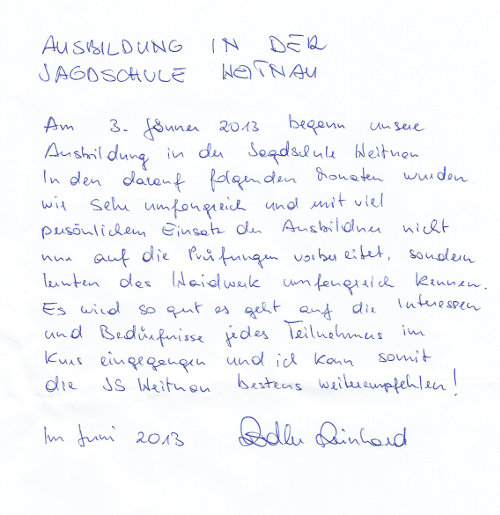 AUSBILDUNG IN DER
JAGDSCHULE WEITNAU
Am 3. Jänner 2013 begann unsere
Ausbildung in der Jagdschule Weitnau
In den darauf folgenden Monaten wurden
wir sehr umfangreich und mit viel
persönlichem Einsatz der Ausbildner nicht
nur auf die Prüfungen vorbereitet, sondern
lernten das Waidwerk umfangreich kennen.
Es wird so gut es geht auf die Interessen
und Bedürfnisse jedes Teilnehmers im
Kurs eingegangen und ich kann somit
die JS Weitnau bestens weiterempfehlen!
Im Juni 2013 Adler Reinhard